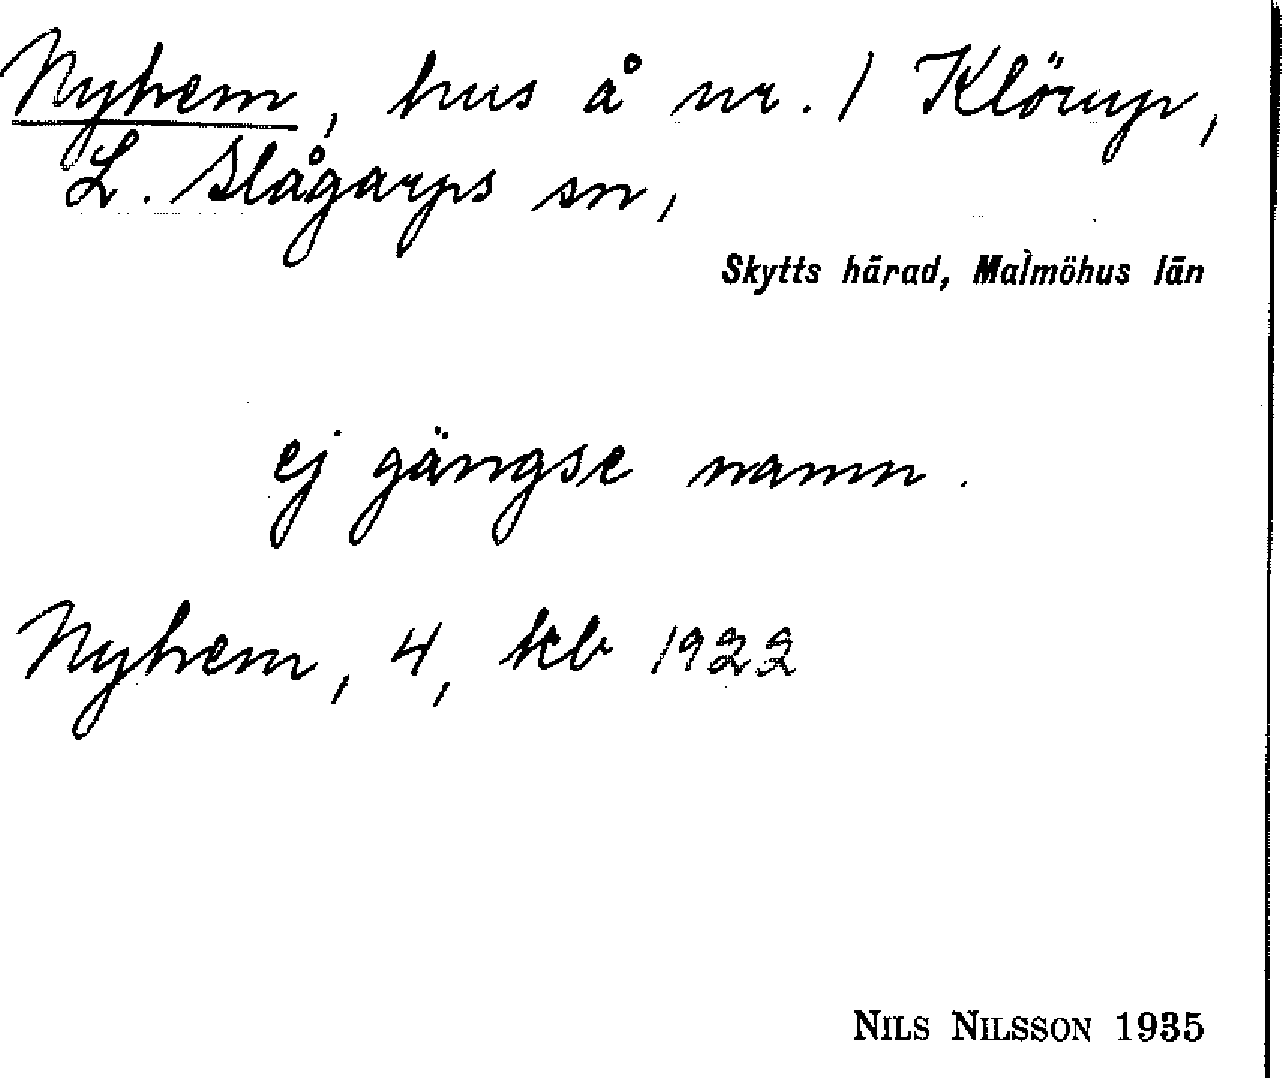 Nyhem, hus å nr. 1 Klörup,
L. Slågarps sn,
Skytts härad, Malmöhus län
ej gängse namn.
Nyhem, 4, kb 1922
NILS NILSSON 1935